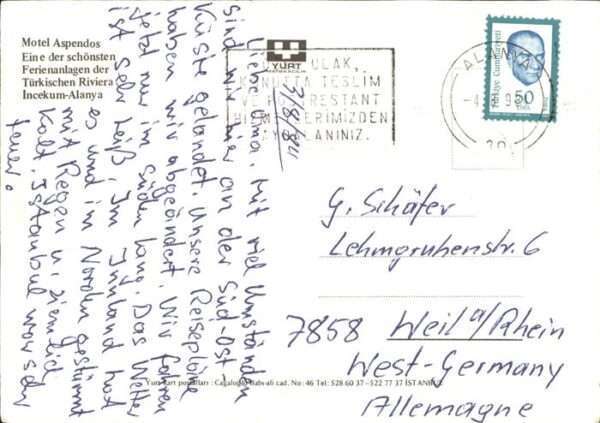 Motel Aspendos
Eine der schönsten
Ferienanlagen der
Türkischen Riviera
Incekum-Alanya
YURT
ULAK,
TESLİM
RESTANT
ALANYA
Türkiye Cumhuriyeti
50
LIRA
3/8/84
Liebe Oma. Mit viel Umständen
sind wir hier an der Süd-Ost-
Küste gelandet. Unsere Reisepläne
haben wir abgeändert. Wir fahren
jetzt nur im Süden lang. Das Wetter
ist sehr heiß. Im Innland hat
es und im Norden gestürmt
mit Regen u. ziemlich
kalt. Istanbul war sehr
teuer.
G. Schäfer
Lehmgrubenstr. 6
7858 Weil a/Rhein
West-Germany
Allemagne
Yurt kart postalları : Cağaloğlu Babıali cad. No: 46 Tel: 528 60 37 - 522 77 37 İSTANBUL